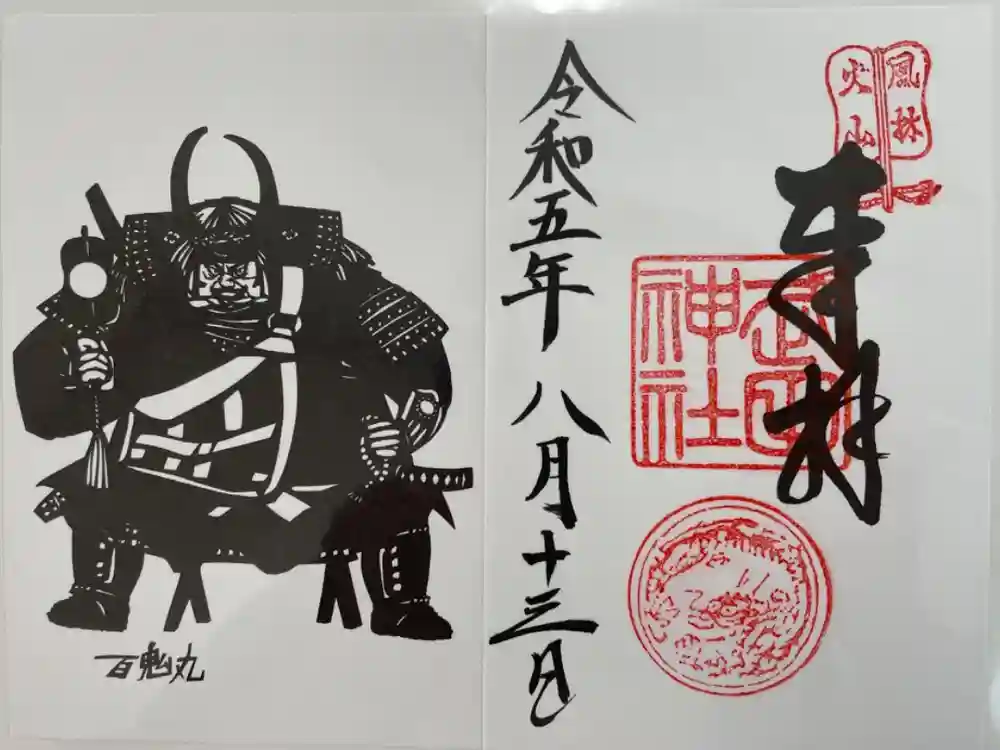 風林
火山
奉拝
武田
神社
令和五年八月十三日
百鬼丸